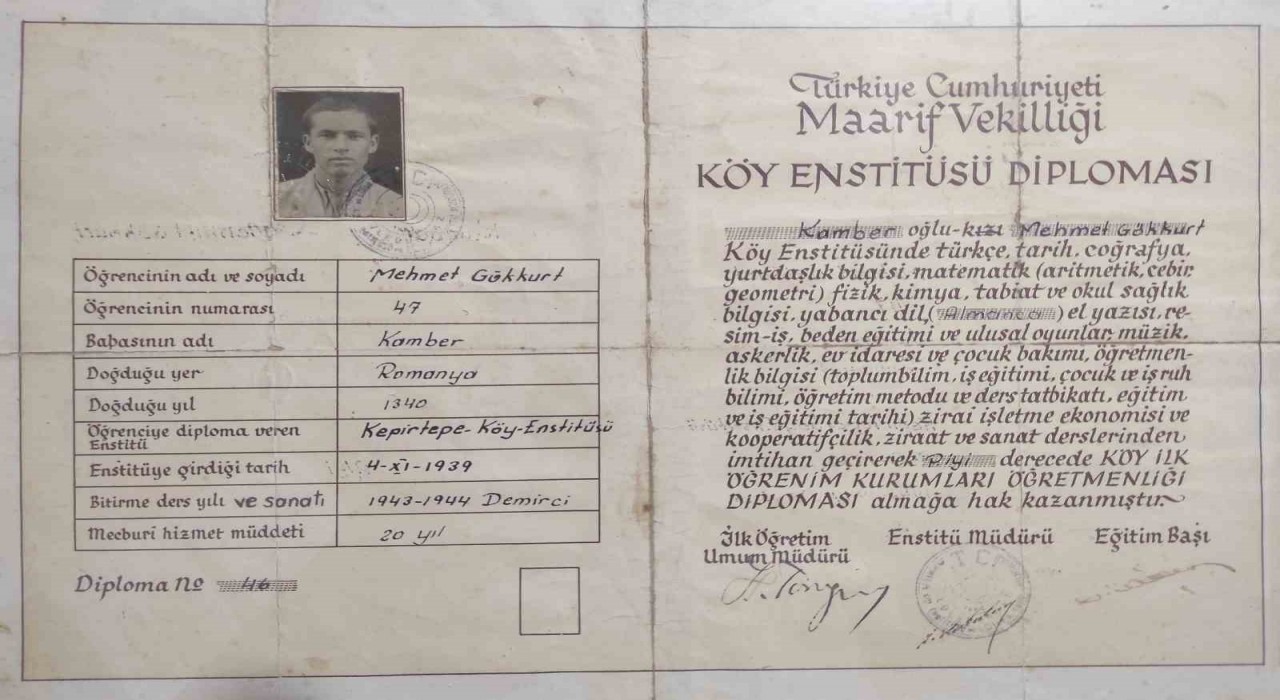 Öğrencinin adı ve soyadı Mehmet Gökkurt
Öğrencinin numarası 47
Babasının adı Kamber
Doğduğu yer Romanya
Doğduğu yıl 1340
Öğrenciye diploma veren Enstitü Kepirtepe-Köy-Enstitüsü
Enstitüye girdiği tarih 4-XI-1939
Bitirme ders yılı ve sanatı 1943-1944 Demirci
Mecburî hizmet müddeti 20 yıl
Diploma No 46
Türkiye Cumhuriyeti
Maarif Vekilliği
KÖY ENSTİTÜSÜ DİPLOMASI
Kamber oğlu-kızı Mehmet Gökkurt
Köy Enstitüsünde türkçe, tarih, coğrafya,
yurtdaşlık bilgisi, matematik (aritmetik, cebir,
geometri) fizik, kimya, tabiat ve okul sağlık
bilgisi, yabancı dil, (Almanca) el yazısı, re-
sim-iş, beden eğitimi ve ulusal oyunlar, müzik,
askerlik, ev idaresi ve çocuk bakımı, öğretmen-
lik bilgisi (toplumbilim, iş eğitimi, çocuk ve iş ruh
bilimi, öğretim metodu ve ders tatbikatı, eğitim
ve iş eğitimi tarihi) zirai işletme ekonomisi ve
kooperatifçilik, ziraat ve sanat derslerinden
imtihan geçirerek derecede KÖY İLK
ÖĞRENİM KURUMLARI ÖĞRETMENLİĞİ
DİPLOMASI almağa hak kazanmıştır.
İlk Öğretim Umum Müdürü
Enstitü Müdürü
Eğitim Başı